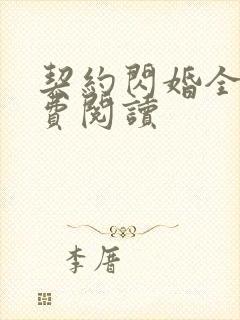 契約閃婚全
費閱讀
李厝